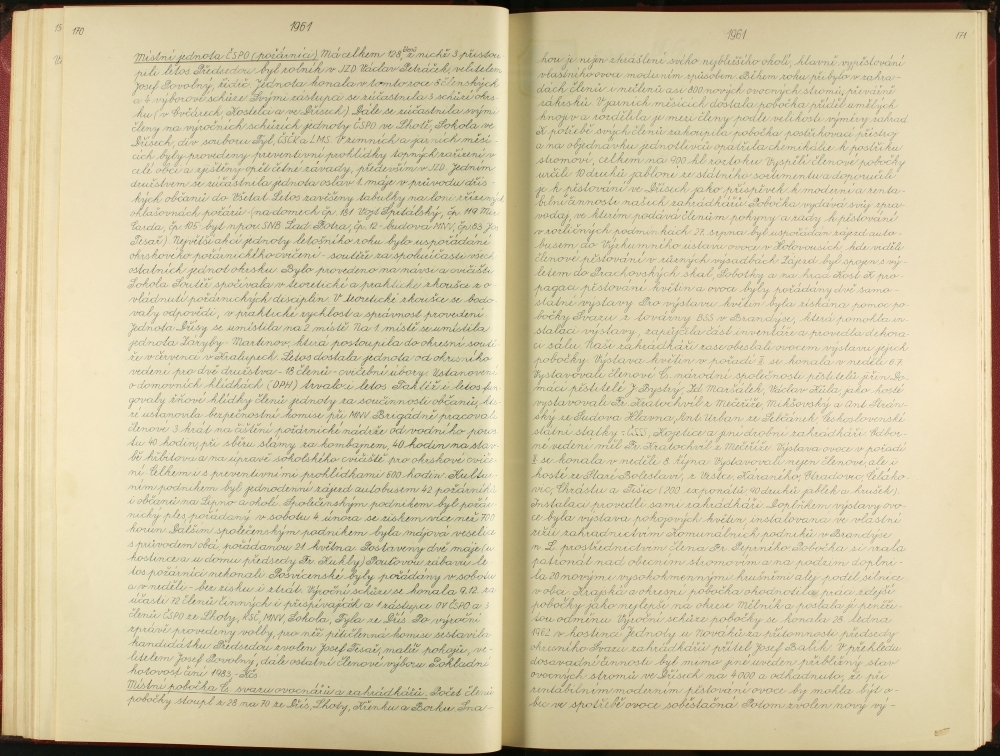 170
1961
Místní jednota ČSPO (požárníci) Má celkem 128 členů z nichž 3 přistou-
pili letos Předsedou byl rolník v JZD Václav Petráček, velitelem
Josef Povolný, řidič. Jednota konala v tomto roce 5 členských
a 4 výborové schůze Svými zástupci se zúčastnila 3 schůzí okrs-
ku (v Ovčárech, Kostelci a ve Dřísech) Dále se zúčastnila svými
členy na výročních schůzích jednoty ČSPO ve Lhotě, Sokola ve
Dřísech, div. souboru Tyl, ČSČK a LMS. V zimních a jarních měsí-
cích byly provedeny preventivní prohlídky topných zařízení v
celé obci a zjištěny opět četné závady, především v JZD. Jedním
družstvem se zúčastnila jednota oslav 1. máje v průvodu dřís-
kých občanů do Všetat Letos zavěšeny tabulky
ohlašovnách požárů (na domech čp. 181 Vogl Špitálský, čp. 119
čp. 105 byt npor. SNB Lad. Votra, čp. 12 budova MNV, čp. 163 Jos.
Tesař). Největší akcí jednoty letošního roku bylo uspořádání
okrskového požárnického cvičení - soutěže za spoluúčasti všech
ostatních jednot okrsku Bylo provedeno na návsi a cvičišti
Sokola Soutěž spočívala v teoretické a praktické zkoušce z o-
vládnutí požárnických disciplin V teoretické zkoušce se bodo-
valy odpovědi, v praktické rychlost a správnost provedení
Jednota Dřísy se umístila na 2. místě Na 1. místě se umístila
jednota Záryby - Martinov, která postoupila do okresní soutě-
že v červenci v Kralupech Letos dostala jednota od okresního
vedení pro dvě družstva - 18 členů - cvičební úbory. Ustanovení
o domovních hlídkách (DPH) trvalo i letos Taktéž i letos fun-
govaly žňové hlídky členů jednoty za součinnosti občanů,
ze ustanovila bezpečnostní komise při MNV Brigádně pracovali
členové 3 krát na čištění požárnické nádrže od vodního poros-
tu 40 hodin, při sběru slámy za kombajnem, 40 hodin na stav-
bě hřbitova a na úpravě sokolského cvičiště pro okrskové cviče-
ní Celkem i s preventivními prohlídkami 600 hodin Kultur-
ním podnikem byl jednodenní zájezd autobusem 42 požárníků
i občanů na Lipno a okolí. Společenským podnikem byl požár-
nický ples pořádaný v sobotu 4. února se ziskem více než 700
korun Dalším společenským podnikem byla májová veselice
s průvodem obcí, pořádanou 21. května Postaveny dvě máje (u
hostince a u domu předsedy Fr. Kukly) Pouťovou zábavu le-
tos požárníci nekonali Posvícenské byly pořádány v sobotu
a v neděli - bez zisku i ztrát. Výroční schůze se konala 9.12. za
účasti 72 členů činných i přispívajících a zástupce OV ČSPO a 3
členů ČSPO ze Lhoty, KSČ, MNV, Sokola, Tyla ze Dřís. Po výroční
zprávě provedeny volby, pro něž pětičlenná komise sestavila
kandidátku Předsedou zvolen Josef Tesař, malíř pokojů, ve-
litelem Josef Povolný, dále ostatní členové výboru Pokladní
hotovost činí 1983,- Kčs
Místní pobočka Čs. svazu ovocnářů a zahrádkářů. Počet členů
pobočky stoupl z 28 na 70 ze Dřís, Lhoty, Křenku a Borku Sna-
1961
171
hou je nejen zkrášlení svého nejbližšího okolí, hlavně vypěstování
vlastního ovoce moderním způsobem Během roku přibylo v zahra-
dách členů i nečlenů asi 800 nových ovocných stromů, převážně
zákrsků V jarních měsících dostala pobočka příděl umělých
hnojiv a rozdělila je mezi členy podle velikosti výměry zahrad
K potřebě svých členů zakoupila pobočka postřikovací přístroj
a na objednávku jednotlivců opatřila chemikálie k postřiku
stromoví, celkem na 900 hl roztoku Vyspělí členové pobočky
určili 10 druhů jabloní ze státního sortimentu a doporučili
je k pěstování ve Dřísech jako příspěvek k moderní a renta-
bilní činnosti našich zahrádkářů Pobočka vydává svůj zpra-
vodaj, ve kterém podává členům pokyny a rady k pěstování
v zdejších podmínkách 27. srpna byl uspořádán zájezd auto-
busem do Výzkumného ústavu ovoce v Holovousích, kde viděli
členové pěstování v různých výsadbách Zájezd byl spojen s vý-
letem do Prachovských skal, Sobotky a na hrad Kost K pro-
pagaci pěstování květin a ovoce byly pořádány dvě samo-
statné výstavy Pro výstavu květin byla získána pomoc po-
bočky Svazu z továrny BSS v Brandýse, která pomohla in-
stalaci výstavy, zapůjčila část inventáře a provedla dekora-
ci sálu Naši zahrádkáři zase obeslali ovocem výstavu jejich
pobočky. Výstava květin v pořadí I. se konala v neděli 6.7.
Vystavovali členové Č. národní společnosti pěstitelů jiřin Do-
mácí pěstitelé J. Bystrý, Zd. Maršálek, Václav Hůla, jako hosté
vystavovali Fr. Kratochvíl z Mečeříže, Mikšovský a Ant. Strán-
ský ze Sudova Hlavna, Ant. Urban ze Sedčánek Československé
státní statky - Kojetice a jiní drobní zahrádkáři Odbor-
né vedení měl Fr. Kratochvíl z Mečeříže Výstava ovoce v pořadí
I. se konala v neděli 8. října Vystavovali nejen členové, ale i
hosté ze Staré Boleslavi, z Vrtce, Káraného, Hradovic, Čeláko-
vic, Chrástu a Tišic (200 exponátů 40 druhů jablek a hrušek).
Instalaci provedli sami zahrádkáři Doplňkem výstavy ovo-
ce byla výstava pokojových květin, instalovaná ve vlastní
režii zahradnictvím Komunálních podniků v Brandýse
n. L. prostřednictvím člena Fr. Peprného Pobočka si vzala
patronát nad obecním stromovím a na podzim doplni-
la 20 novými vysokokmennými hrušněmi alej podél silnice
v obci. Krajská a okresní pobočka ohodnotily práci zdejší
pobočky jako nejlepší na okrese Mělník a poslala jí peněži-
tou odměnu Výroční schůze pobočky se konala 28. ledna
1962 v hostinci Jednoty u Nováků za přítomnosti předsedy
okresního Svazu zahrádkářů přítel Josef Balík. V přehledu
dosavadní činnosti byl mimo jiné uveden přibližný stav
ovocných stromů ve Dřísech na 4000 a odhadnuto, že při
rentabilním moderním pěstování ovoce by mohla být o-
bec ve spotřebě ovoce soběstačná Potom zvolen nový vý-